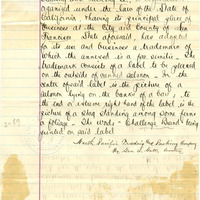 organized under the law of the State of
California & having its principal place of
business at the City and County of San
Francisco State aforesaid, has adopted
for its use and business a trademark of
which the annexed is a fac-simile. The
trademark consists of a label to be placed
on the outside of canned salmon. In the
center of said label is the picture of a
salmon lying on the banks of a
the end of extreme right hand of the label is the
picture of a Stag standing among some ferns
or foliage. The words "Challenge Brand" being
printed on said label
North Pacific Trading and Packing Company